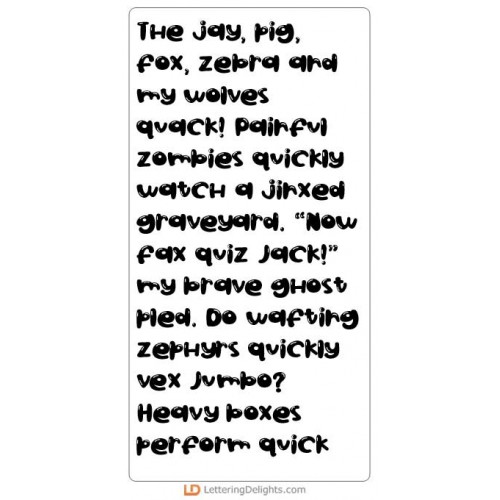 The jay, pig,
fox, zebra and
my wolves
quack! Painful
zombies quickly
watch a jinxed
graveyard. “Now
fax quiz Jack!”
my brave ghost
pled. Do wafting
zephyrs quickly
vex Jumbo?
Heavy boxes
perform quick
LD LetteringDelights.com